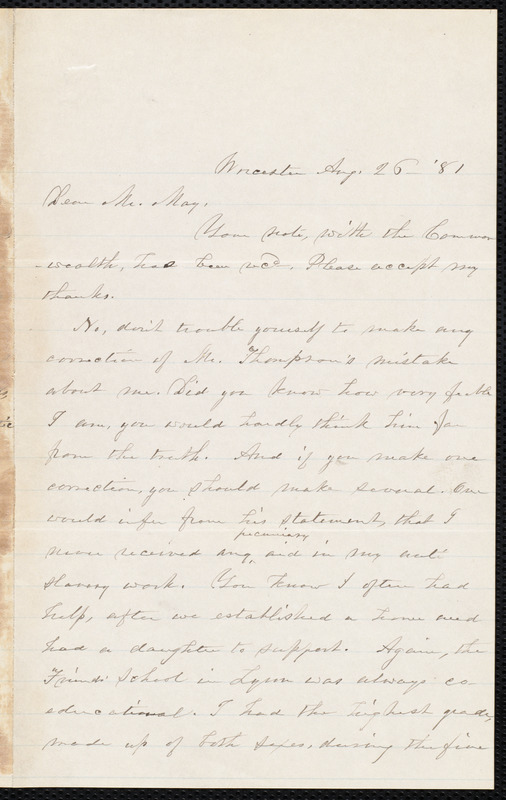 Worcester Aug. 26 - '81
Dear Mr. May,
Your note, with the Common
-wealth, has been recd. Please accept my
thanks.
No, don't trouble yourself to make any
correction of Mr. Thompson's mistake
about me. Did you know how very feeble
I am, you would hardly think him far
from the truth. And if you make one
correction, you should make several. One
would infer from his statement, that I
pecuniary
never received any, aid in my anti
slavery work. You know I often had
help, after we established a home and
had a daughter to support. Again, the
Friends School in Lynn was always co
educational. I had the highest grade,
made up of both sexes, during the five